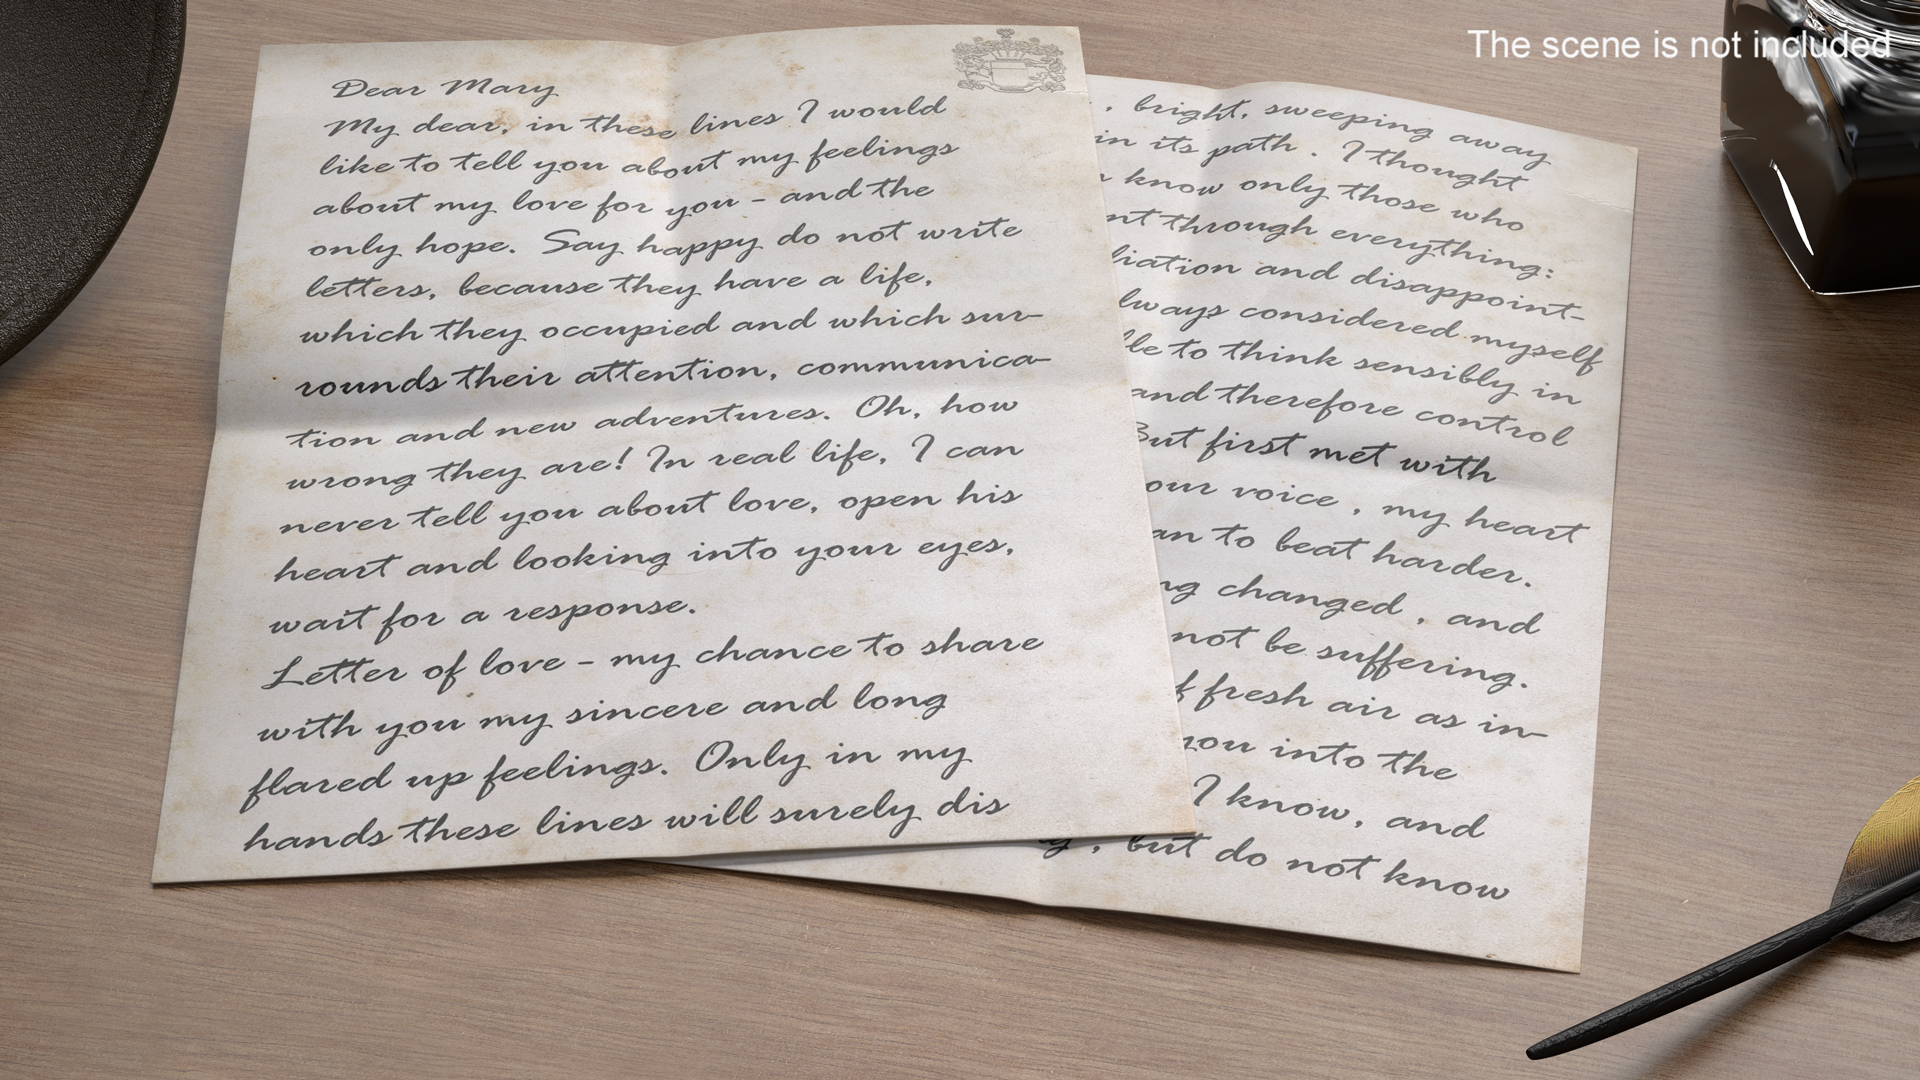 The scene is not included
Dear Mary
My dear, in these lines I would
like to tell you about my feelings
about my love for you - and the
only hope. Say happy do not write
letters, because they have a life,
which they occupied and which sur-
rounds their attention, communica-
tion and new adventures. Oh, how
wrong they are! In real life, I can
never tell you about love, open his
heart and looking into your eyes,
wait for a response.
Letter of love - my chance to share
with you my sincere and long
flared up feelings. Only in my
hands these lines will surely dis
, bright, sweeping away
in its path . I thought
know only those who
through everything:
and disappoint-
considered myself
to think sensibly in
and therefore control
But first met with
voice , my heart
to beat harder.
changed , and
not be suffering.
fresh air as in-
you into the
I know, and
, but do not know